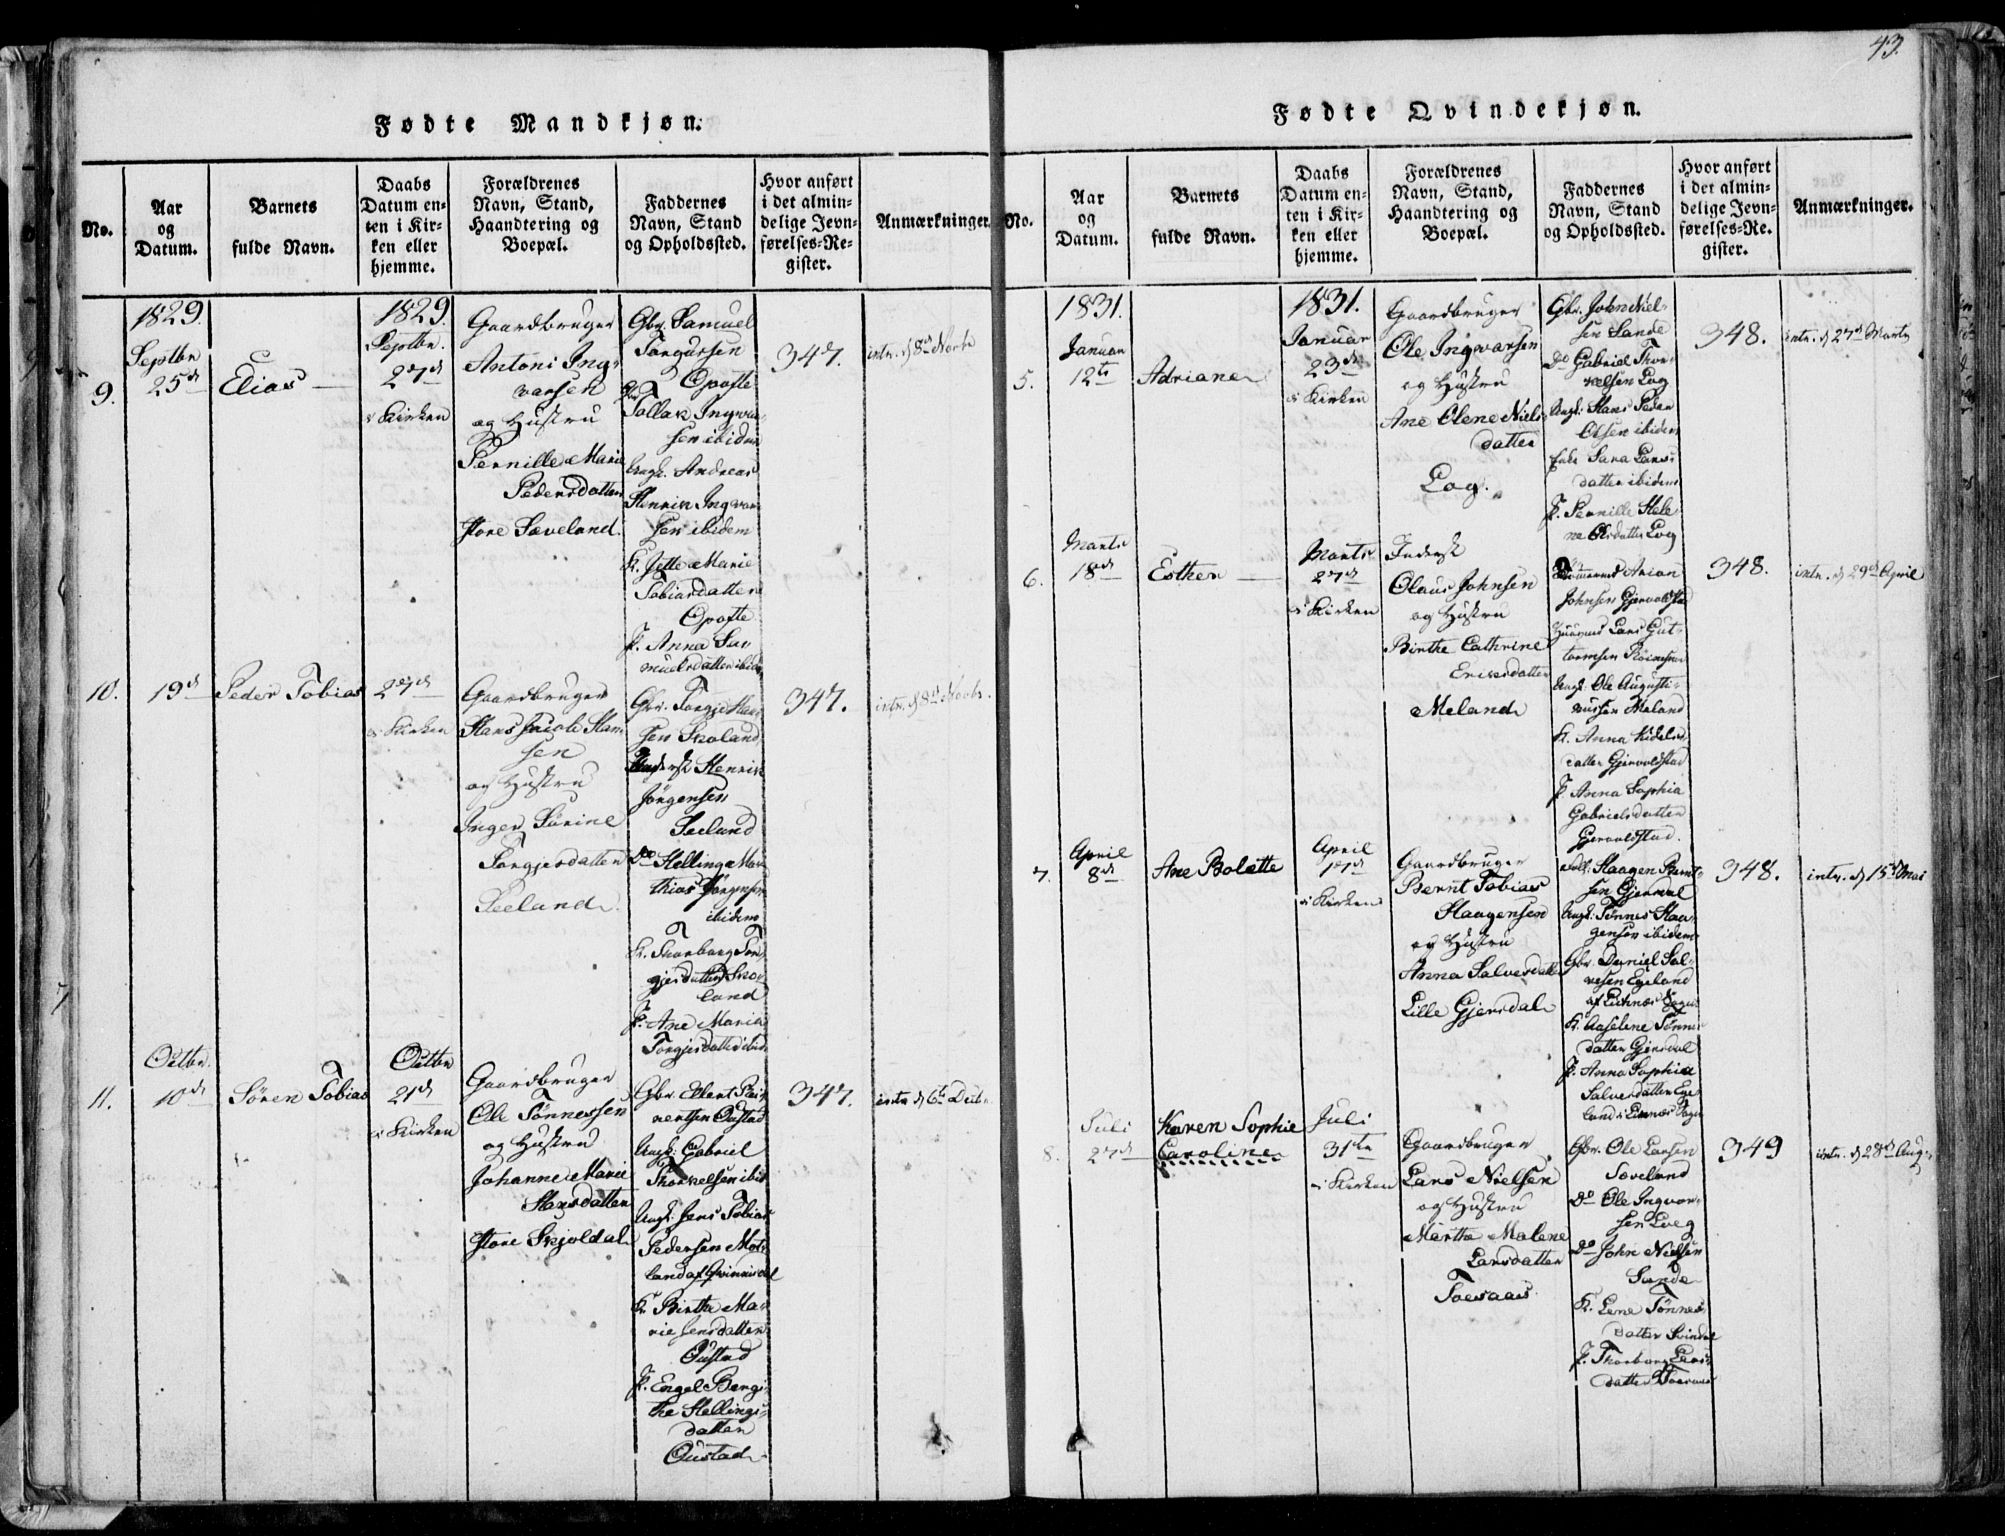 43.
Fødte Mandkjøn.
No.
Aar
og
Datum.
Barnets
fulde Navn.
Daabs
Datum en-
ten i Kir-
ken eller
hjemme.
Forældrenes
Navn, Stand,
Haandtering og
Boepæl.
Faddernes
Navn, Stand
og Opholdssted.
Hvor anført
i det almin-
delige Jevn-
førelses-Re-
gister.
Anmærkninger.
9.
1829.
Septbr
25de
Elias
1829.
Septbr.
27de
i Kirken
Gaardbruger
Antoni Ing-
varsen
og Hustru
Pernille Marie
Pedersdatter
Store Sæveland.
Gbr. Samuel
Torgussen
Opofte
Tollak Ingvar-
sen ibidem
Ungk. Andreas
Henrik Ingvar-
sen ibidem
K. Jette Marie
Tobiasdatter
Opofte
P. Anna Sa-
muelsdatter ibidem
347.
intr. d 8de Novbr
10.
19de
Peder Tobias
27de
i Kirken
Gaardbruger
Hans Jacob Han-
sen
og Hustru
Inger Sørine
Torgjersdatter
Seeland.
Gbr. Torgje Han-
sen Skoland
Henrik
Jörgensen
Seeland
Do Helling Ma-
thias Jörgensen
ibidem
K. Thorborg Tor-
gjersdatter Sko-
land
P. Ane Maria
Torgjersdatter ibid.
347.
intr. d 8de Novbr.
11.
Octbr.
10de
Sören Tobias
Octbr
21de
i Kirken
Gaardbruger
Ole Tönnessen
og Hustru
Johanne Marie
Hansdatter
Store Skjoldal
Gbr. Elert Rei-
nertsen Oustad
Ungk. Gabriel
Thorkelsen ibid
Ungk. Jens Tobias
Pedersen Mot-
land af Qvinnisdal
K. Birthe Ma-
rie Jensdatter
Oustad
P. Engel Bergi-
the Hellings-
datter
Oustad
347.
intr. d 6te Decbr.
Fødte Qvindekjøn.
No.
Aar
og
Datum.
Barnets
fulde Navn.
Daabs
Datum en-
ten i Kir-
ken eller
hjemme.
Forældrenes
Navn, Stand,
Haandtering og
Boepæl.
Faddernes
Navn, Stand
og Opholdssted.
Hvor anført
i det almin-
delige Jevn-
førelses-Re-
gister.
Anmærkninger.
5.
1831.
Januar
12te
Adriane
1831.
Januar
23de
i Kirken
Gaardbruger
Ole Ingvarsen
og Hustru
Ane Olene Niels-
datter
Log.
Gbr. John Niel-
sen Sande
Do Gabriel Thor-
kelsen Log
Ungk. Hans Peder
Olsen ibidem
Enke Sara Lars-
datter ibidem
P. Pernille Hele-
ne Olsdatter Log
348.
intr. d 27de Marts
6.
Marts
18de
Esther
Marts
27de
i Kirken
Inderst
Olaus Johnsen
og Hustru
Birthe Cathrine
Ericsdatter
Meland
Arian
Johnsen Gjervoldstad
Huusmd Lars Gut-
tormsen
Ungk. Ole Augusti-
nussen Meland
K. Anna
datter Gjervoldstad
P. Anna Sophia
Gabrielsdatter
Gjervoldstad.
348.
intr. d 29de April
7.
April
8de
Ane Bolette
April
17de
i Kirken
Gaardbruger
Bernt Tobias
Haagensen
og Hustru
Anna Salvesdatter
Lille Gjersdal
Haagen Bernt-
sen Gjersdal
Ungk. Tönnes Haa-
gensen ibidem
Gbr. Daniel Sal-
vesen Egeland
af Liknæs Sogn
K. Aaselene Tönnes
datter Gjersdal
P. Anna Sophia
Salvesdatter Ege-
land i Liknæs Sogn
348.
intr. d 15de Mai
8.
Juli
27de
Karen Sophie
Caroline
Juli
31te
i Kirken
Gaardbruger
Lars Nielsen
og Hustru
Marthe Malene
Larsdatter
Toesaas
Gbr. Ole Larsen
Soveland
Do Ole Ingvar-
sen Log
Do John Nielsen
Sande
K. Lene Tönnes-
datter Svindal
P. Thorborg Lars-
datter Toesaas
349
intr. d 28de Aug.